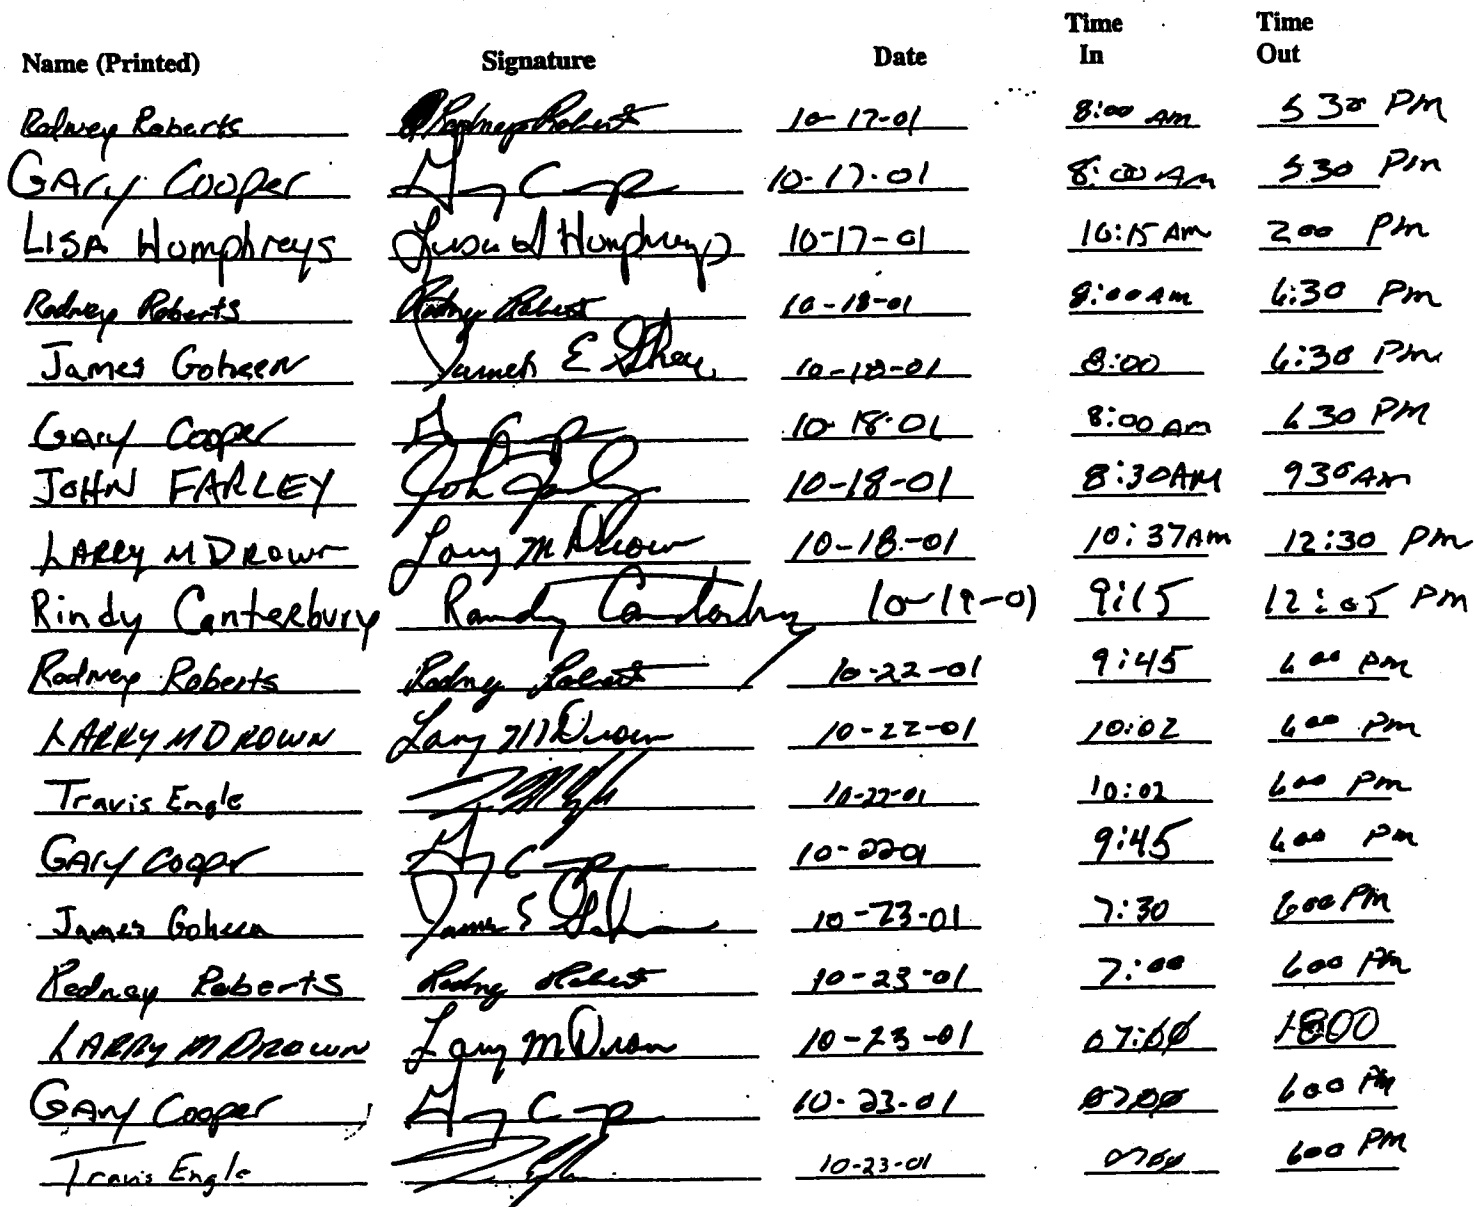 Name (Printed) Signature Date Time In Time Out
Rodney Roberts Rodney Roberts 10-17-01 8:00 AM 5 30 PM
GAry Cooper Gary Cooper 10-17-01 8:00 Am 5 30 Pm
LISA Humphreys Lisa Humphreys 10-17-01 10:15 AM 2 00 Pm
Rodney Roberts Rodney Roberts 10-18-01 8:00 am 6:30 Pm
James Goheen James E Goheen 10-18-01 8:00 6:30 Pm
GAry Cooper Gary Cooper 10-18-01 8:00 AM 6 30 PM
JOHN FARLEY John Farley 10-18-01 8:30AM 9 30 AM
LARRY M DROWN Larry M Drown 10-18-01 10:37AM 12:30 Pm
Rindy Canterbury Randy Canterbury 10-19-01 9:15 12:05 PM
Rodney Roberts Rodney Roberts 10-22-01 9:45 6 00 Pm
LARRY M DROWN Larry M Drown 10-22-01 10:02 6 00 Pm
Travis Engle 10-22-01 10:02 6 00 Pm
GAry Cooper Gary Cooper 10-22 01 9:45 6 00 Pm
James Goheen James E Goheen 10-23-01 7:30 6 00 Pm
Rodney Roberts Rodney Roberts 10-23-01 7:00 6 00 Pm
LARRY M DROWN Larry M Drown 10-23-01 07:00 1800
GAry Cooper Gary Cooper 10-23-01 0700 6 00 PM
Travis Engle 10-23-01 0700 6 00 PM